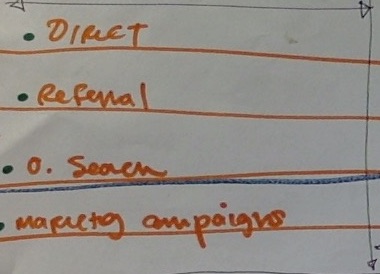 • DIRECT
• Referral
• O. Search
• Marketing campaigns